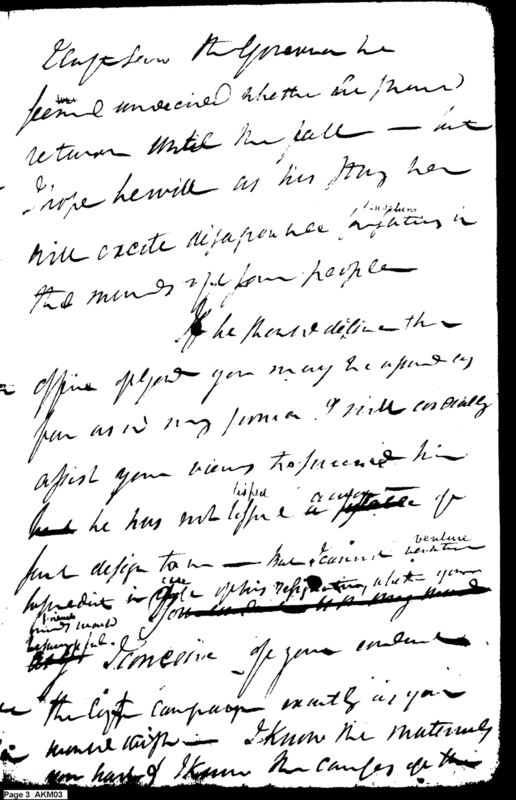 I have seen the Governor he
seemed undecided whether he should
return until the fall — but
I hope he will as his stay here
will excite disagreeable suspicions in
the minds of some people
If he should decline the
office of you may be assured as
far as in my power I will cordially
assist your views to succeed him
he has not lisped a of
such design to me — But I cannot venture
to predict in case of his resignation whether your
friends would
be successful.
I conceive of your conduct
the last campaign exactly as you
would wish — I know the materials
you had & I know the causes of the
Page 3 AKM03